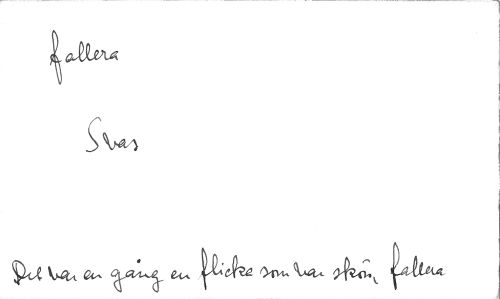 fallera
Svas
Det var en gång en flicka som var skön, fallera